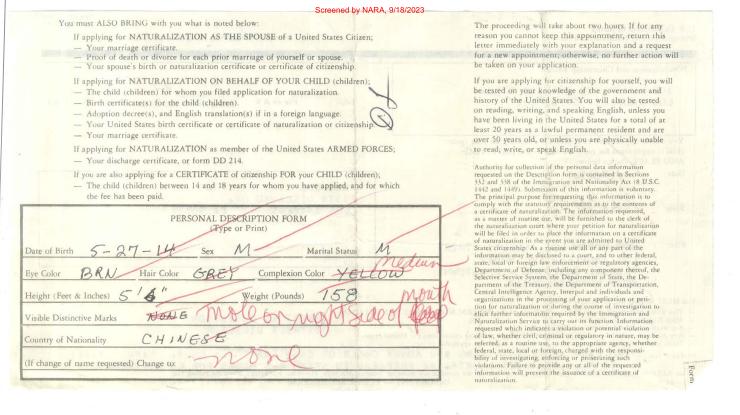 Screened by NARA, 9/18/2023
You must ALSO BRING with you what is noted below:
If applying for NATURALIZATION AS THE SPOUSE of a United States Citizen;
— Your marriage certificate.
— Proof of death or divorce for each prior marriage of yourself or spouse.
— Your spouse's birth or naturalization certificate or certificate of citizenship.
If applying for NATURALIZATION ON BEHALF OF YOUR CHILD (children);
— The child (children) for whom you filed application for naturalization.
— Birth certificate(s) for the child (children).
— Adoption decree(s), and English translation(s) if in a foreign language.
— Your United States birth certificate or certificate of naturalization or citizenship.
— Your marriage certificate.
If applying for NATURALIZATION as member of the United States ARMED FORCES;
— Your discharge certificate, or form DD 214.
If you are also applying for a CERTIFICATE of citizenship FOR your CHILD (children);
— The child (children) between 14 and 18 years for whom you have applied, and for which
the fee has been paid.
PERSONAL DESCRIPTION FORM
(Type or Print)
Date of Birth 5-27-14 Sex M Marital Status M
medium
Eye Color BRN Hair Color GREY Complexion Color YELLOW
Height (Feet & Inches) 5'6" Weight (Pounds) 158
mouth
Visible Distinctive Marks NONE mole on right side of
Country of Nationality CHINESE
(If change of name requested) Change to: none
The proceeding will take about two hours. If for any
reason you cannot keep this appointment, return this
letter immediately with your explanation and a request
for a new appointment; otherwise, no further action will
be taken on your application.
If you are applying for citizenship for yourself, you will
be tested on your knowledge of the government and
history of the United States. You will also be tested
on reading, writing, and speaking English, unless you
have been living in the United States for a total of at
least 20 years as a lawful permanent resident and are
over 50 years old, or unless you are physically unable
to read, write, or speak English.
Authority for collection of the personal data information
requested on the Description form is contained in Sections
332 and 338 of the Immigration and Nationality Act (8 U.S.C.
1442 and 1449). Submission of this information is voluntary.
The principal purpose for requesting this information is to
comply with the statutory requirements as to the contents of
a certificate of naturalization. The information requested,
as a matter of routine use, will be furnished to the clerk of
the naturalization court where your petition for naturalization
will be filed in order to place the information on a certificate
of naturalization in the event you are admitted to United
States citizenship. As a routine use all or any part of the
information may be disclosed to a court, and to other federal,
state, local or foreign law enforcement or regulatory agencies,
Department of Defense, including any component thereof, the
Selective Service System, the Department of State, the De-
partment of the Treasury, the Department of Transportation,
Central Intelligence Agency, Interpol and individuals and
organizations in the processing of your application or peti-
tion for naturalization or during the course of investigation to
elicit further information required by the Immigration and
Naturalization Service to carry out its function. Information
requested which indicates a violation or potential violation
of law, whether civil, criminal or regulatory in nature, may be
referred, as a routine use, to the appropriate agency, whether
federal, state, local or foreign, charged with the responsi-
bility of investigating, enforcing or prosecuting such
violations. Failure to provide any or all of the requested
information will prevent the issuance of a certificate of
naturalization.
Form